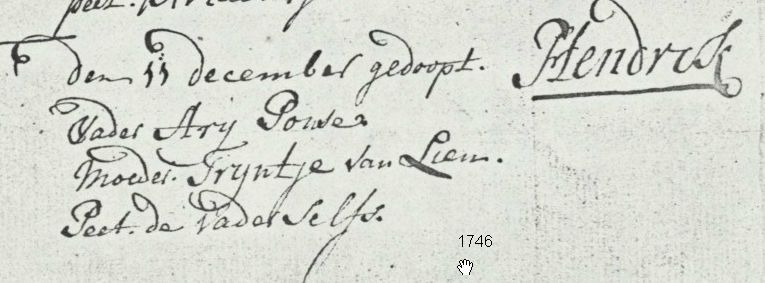 den 11 december gedoopt. Hendrick
Vader Ary Pouse
Moeder. Tryntje van Liem.
Peet. de Vader selfs.
1746